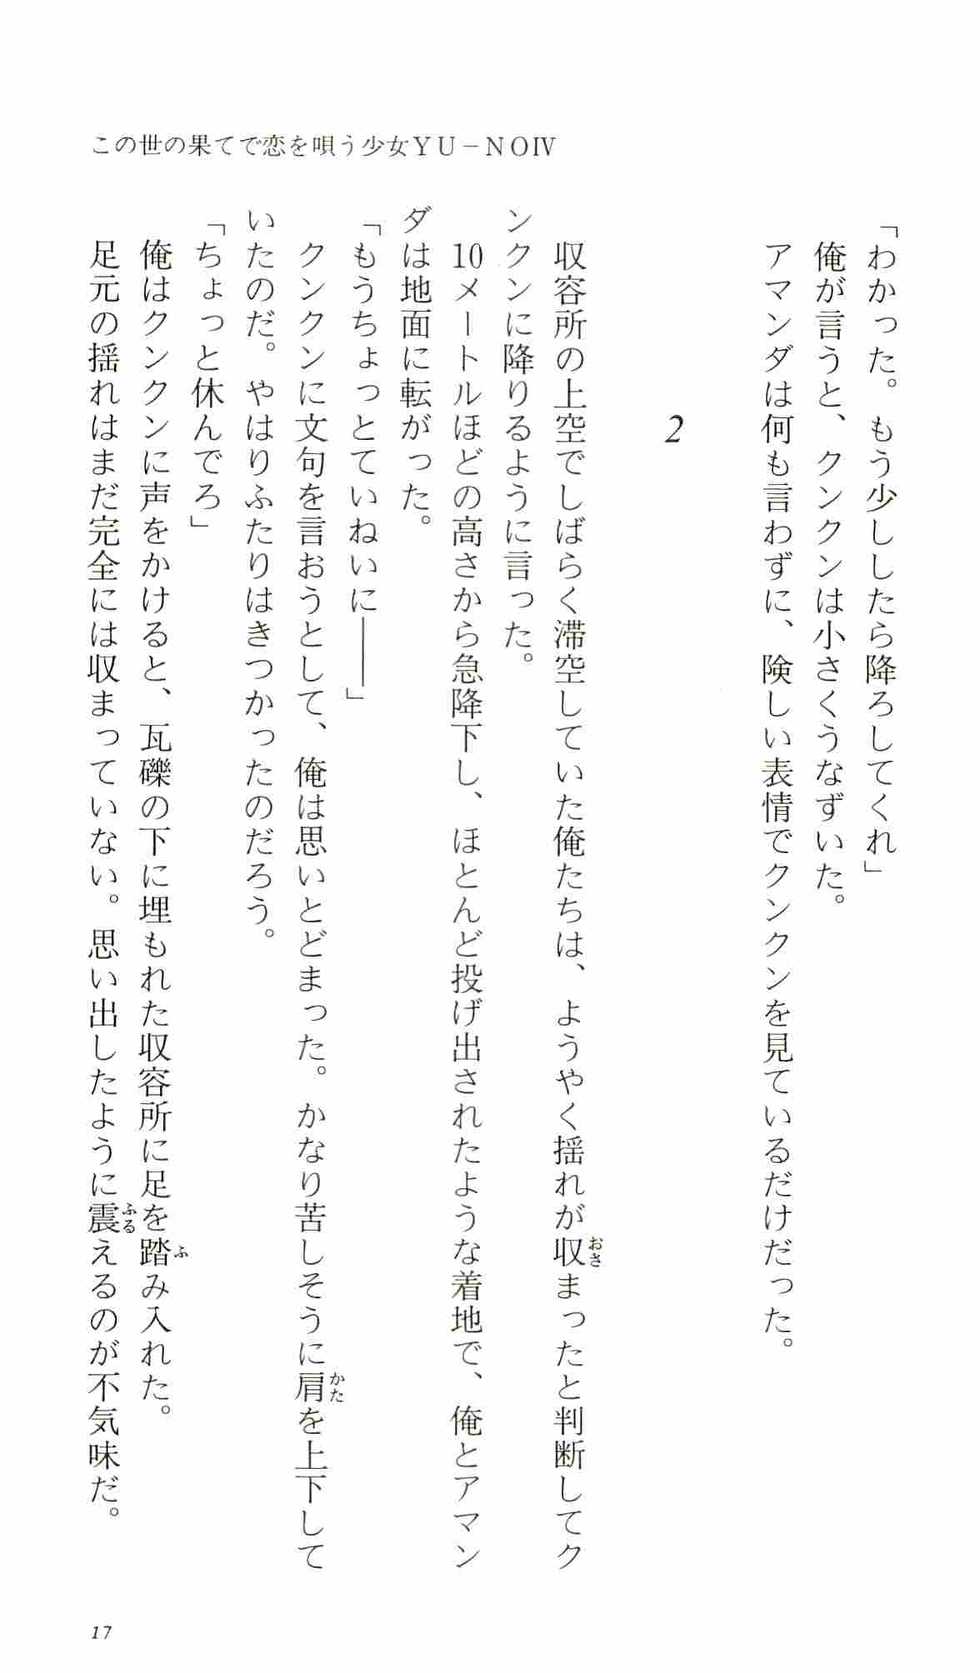 この世の果てで恋を唄う少女YU－NOⅣ
「わかった。もう少ししたら降ろしてくれ」
俺が言うと、クンクンは小さくうなずいた。
アマンダは何も言わずに、険しい表情でクンクンを見ているだけだった。
2
収容所の上空でしばらく滞空していた俺たちは、ようやく揺れが収まったと判断してク
ンクンに降りるように言った。
10メートルほどの高さから急降下し、ほとんど投げ出されたような着地で、俺とアマン
ダは地面に転がった。
「もうちょっとていねいに――」
クンクンに文句を言おうとして、俺は思いとどまった。かなり苦しそうに肩を上下して
いたのだ。やはりふたりはきつかったのだろう。
「ちょっと休んでろ」
俺はクンクンに声をかけると、瓦礫の下に埋もれた収容所に足を踏み入れた。
足元の揺れはまだ完全には収まっていない。思い出したように震えるのが不気味だ。
おさ
かた
ふ
ふる
17